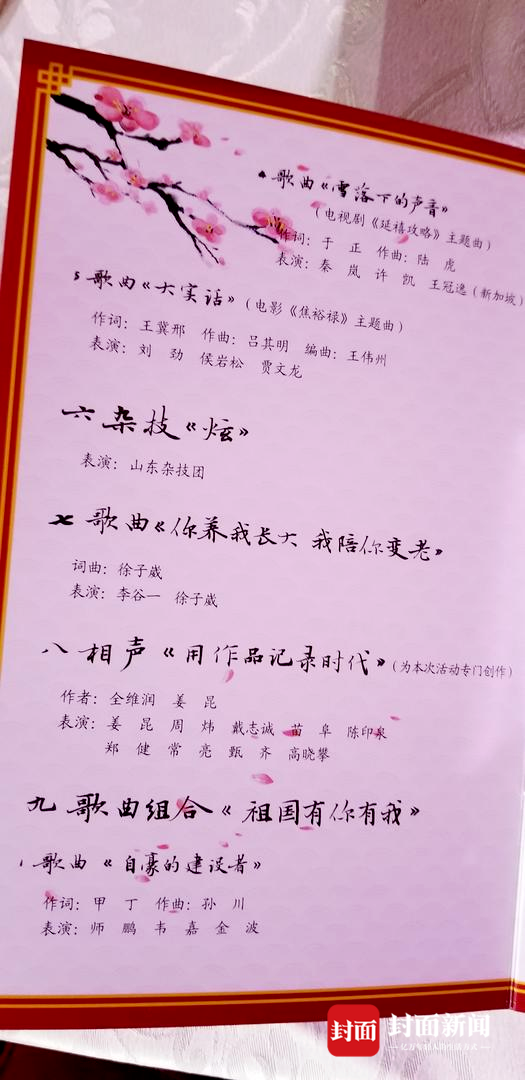 4 歌曲《雪落下的声音》
（电视剧《延禧攻略》主题曲）
作词：于 正 作曲：陆 虎
表演：秦 岚 许 凯 王冠逸（新加坡）
5 歌曲《大实话》（电影《焦裕禄》主题曲）
作词：王冀邢 作曲：吕其明 编曲：王伟州
表演：刘 劲 侯岩松 贾文龙
六 杂技《炫》
表演：山东杂技团
七 歌曲《你养我长大 我陪你变老》
词曲：徐子崴
表演：李谷一 徐子崴
八 相声《用作品记录时代》（为本次活动专门创作）
作者：全维润 姜 昆
表演：姜 昆 周 炜 戴志诚 苗 阜 陈印泉
郑 健 常 亮 甄 齐 高晓攀
九 歌曲组合《祖国有你有我》
1 歌曲《自豪的建设者》
作词：甲 丁 作曲：孙 川
表演：师 鹏 韦 嘉 金 波
封面 封面新闻
亿万年轻人的生活方式